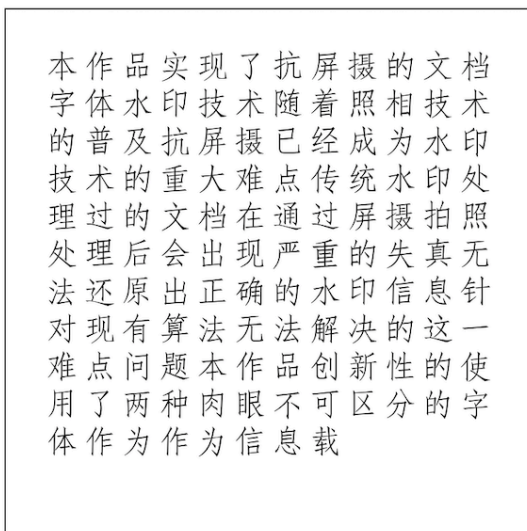 本作品实现了抗屏摄的文档
字体水印技术随着照相技术
的普及抗屏摄已经成为水印
技术的重大难点传统水印处
理过的文档在通过屏摄拍照
处理后会出现严重的失真无
法还原出正确的水印信息针
对现有算法无法解决的这一
难点问题本作品创新性的使
用了两种肉眼不可区分的字
体作为作为信息载